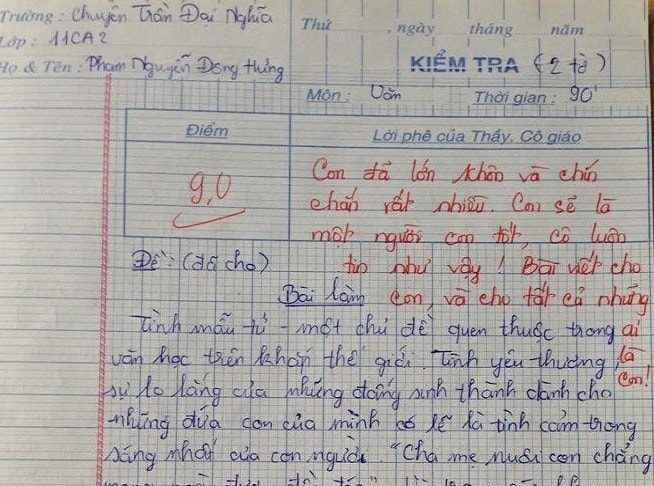 Trường: Chuyên Trần Đại Nghĩa
Thứ , ngày tháng năm
Lớp: 11CA2
Họ & Tên: Phạm Nguyễn Đông Hưng
KIỂM TRA (2 tờ)
Môn: Văn Thời gian: 90'
Điểm
Lời phê của Thầy, Cô giáo
9,0
Con đã lớn khôn và chín
chắn rất nhiều. Con sẽ là
một người con tốt, cô luôn
tin như vậy! Bài viết cho
con, và cho tất cả những
ai
là
con!
Đề: (đã cho)
Bài làm
Tình mẫu tử - một chủ đề quen thuộc trong
văn học trên khắp thế giới. Tình yêu thương,
sự lo lắng của những đấng sinh thành dành cho
những đứa con của mình có lẽ là tình cảm trong
sáng nhất của con người. "Cha mẹ nuôi con chẳng